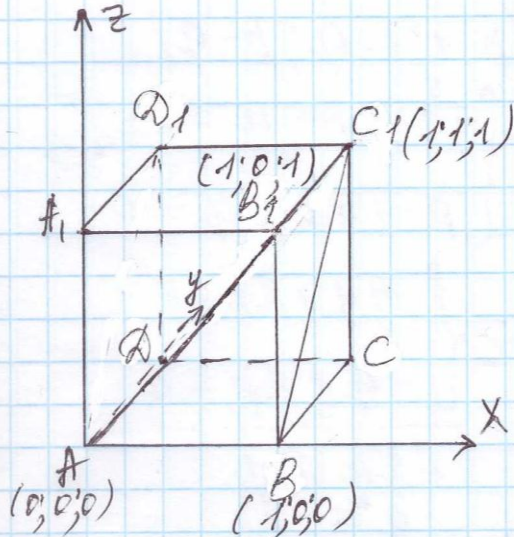 Z
D1
C1(1;1;1)
(1;0;1)
A1
B1
y
D
C
X
A
B
(0;0;0)
(1;0;0)